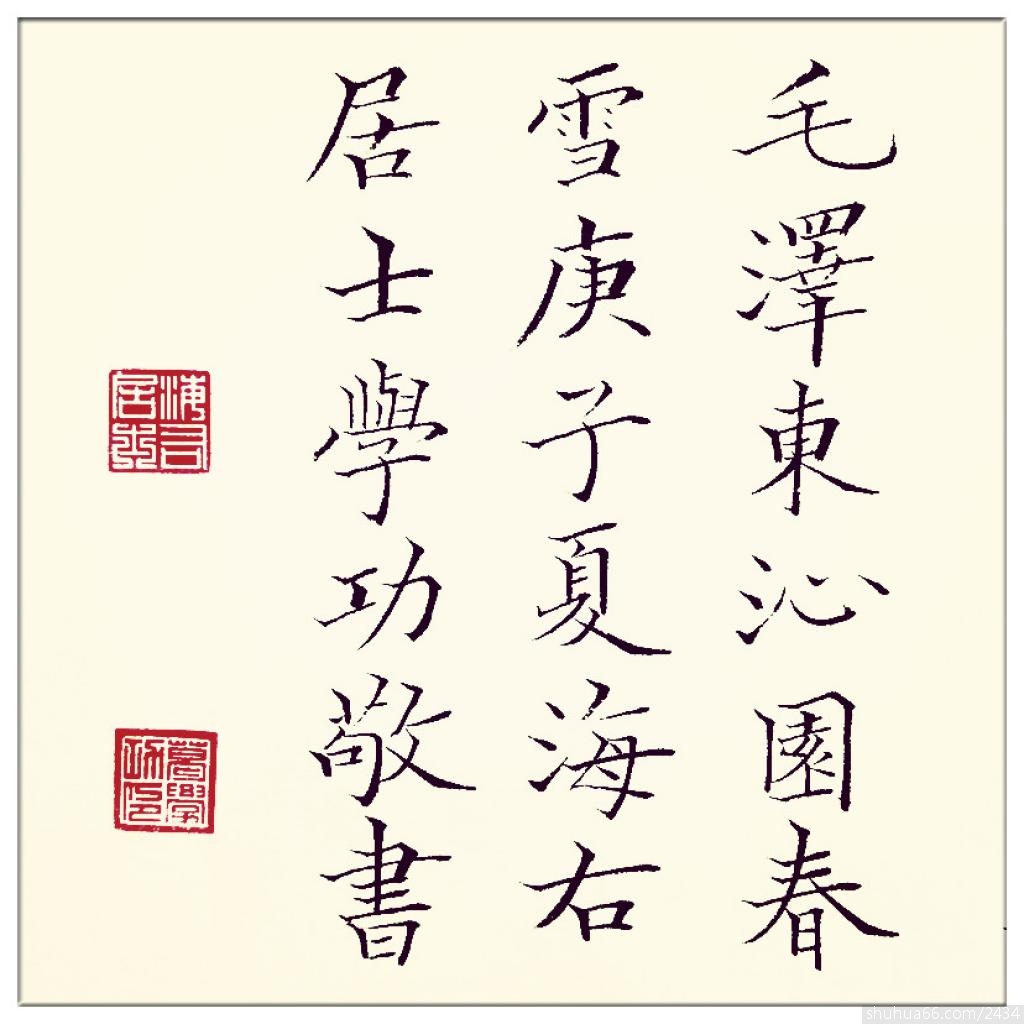 毛澤東沁園春
雪庚子夏海右
居士學功敬書
海右居士
葛學功印
shuhua66.com/2434